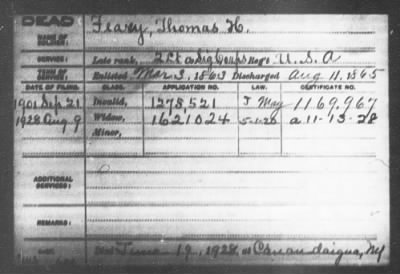 DEAD
NAME OF SOLDIER: Feary, Thomas H.
SERVICE: Late rank, 2 Lt Sig Corps Reg't U.S.A
TERM OF SERVICE: Enlisted Mar 3, 1863 Discharged Aug 11, 1865
DATE OF FILING. CLASS. APPLICATION NO. LAW. CERTIFICATE NO.
1901 Sep 21 Invalid, 1278,521 May 1,169,967
1928 Aug 9 Widow, 1621024 5-1-20 a 11-13-28
Minor,
ADDITIONAL SERVICES:
REMARKS:
June 19, 1928, at Canandaigua, NY